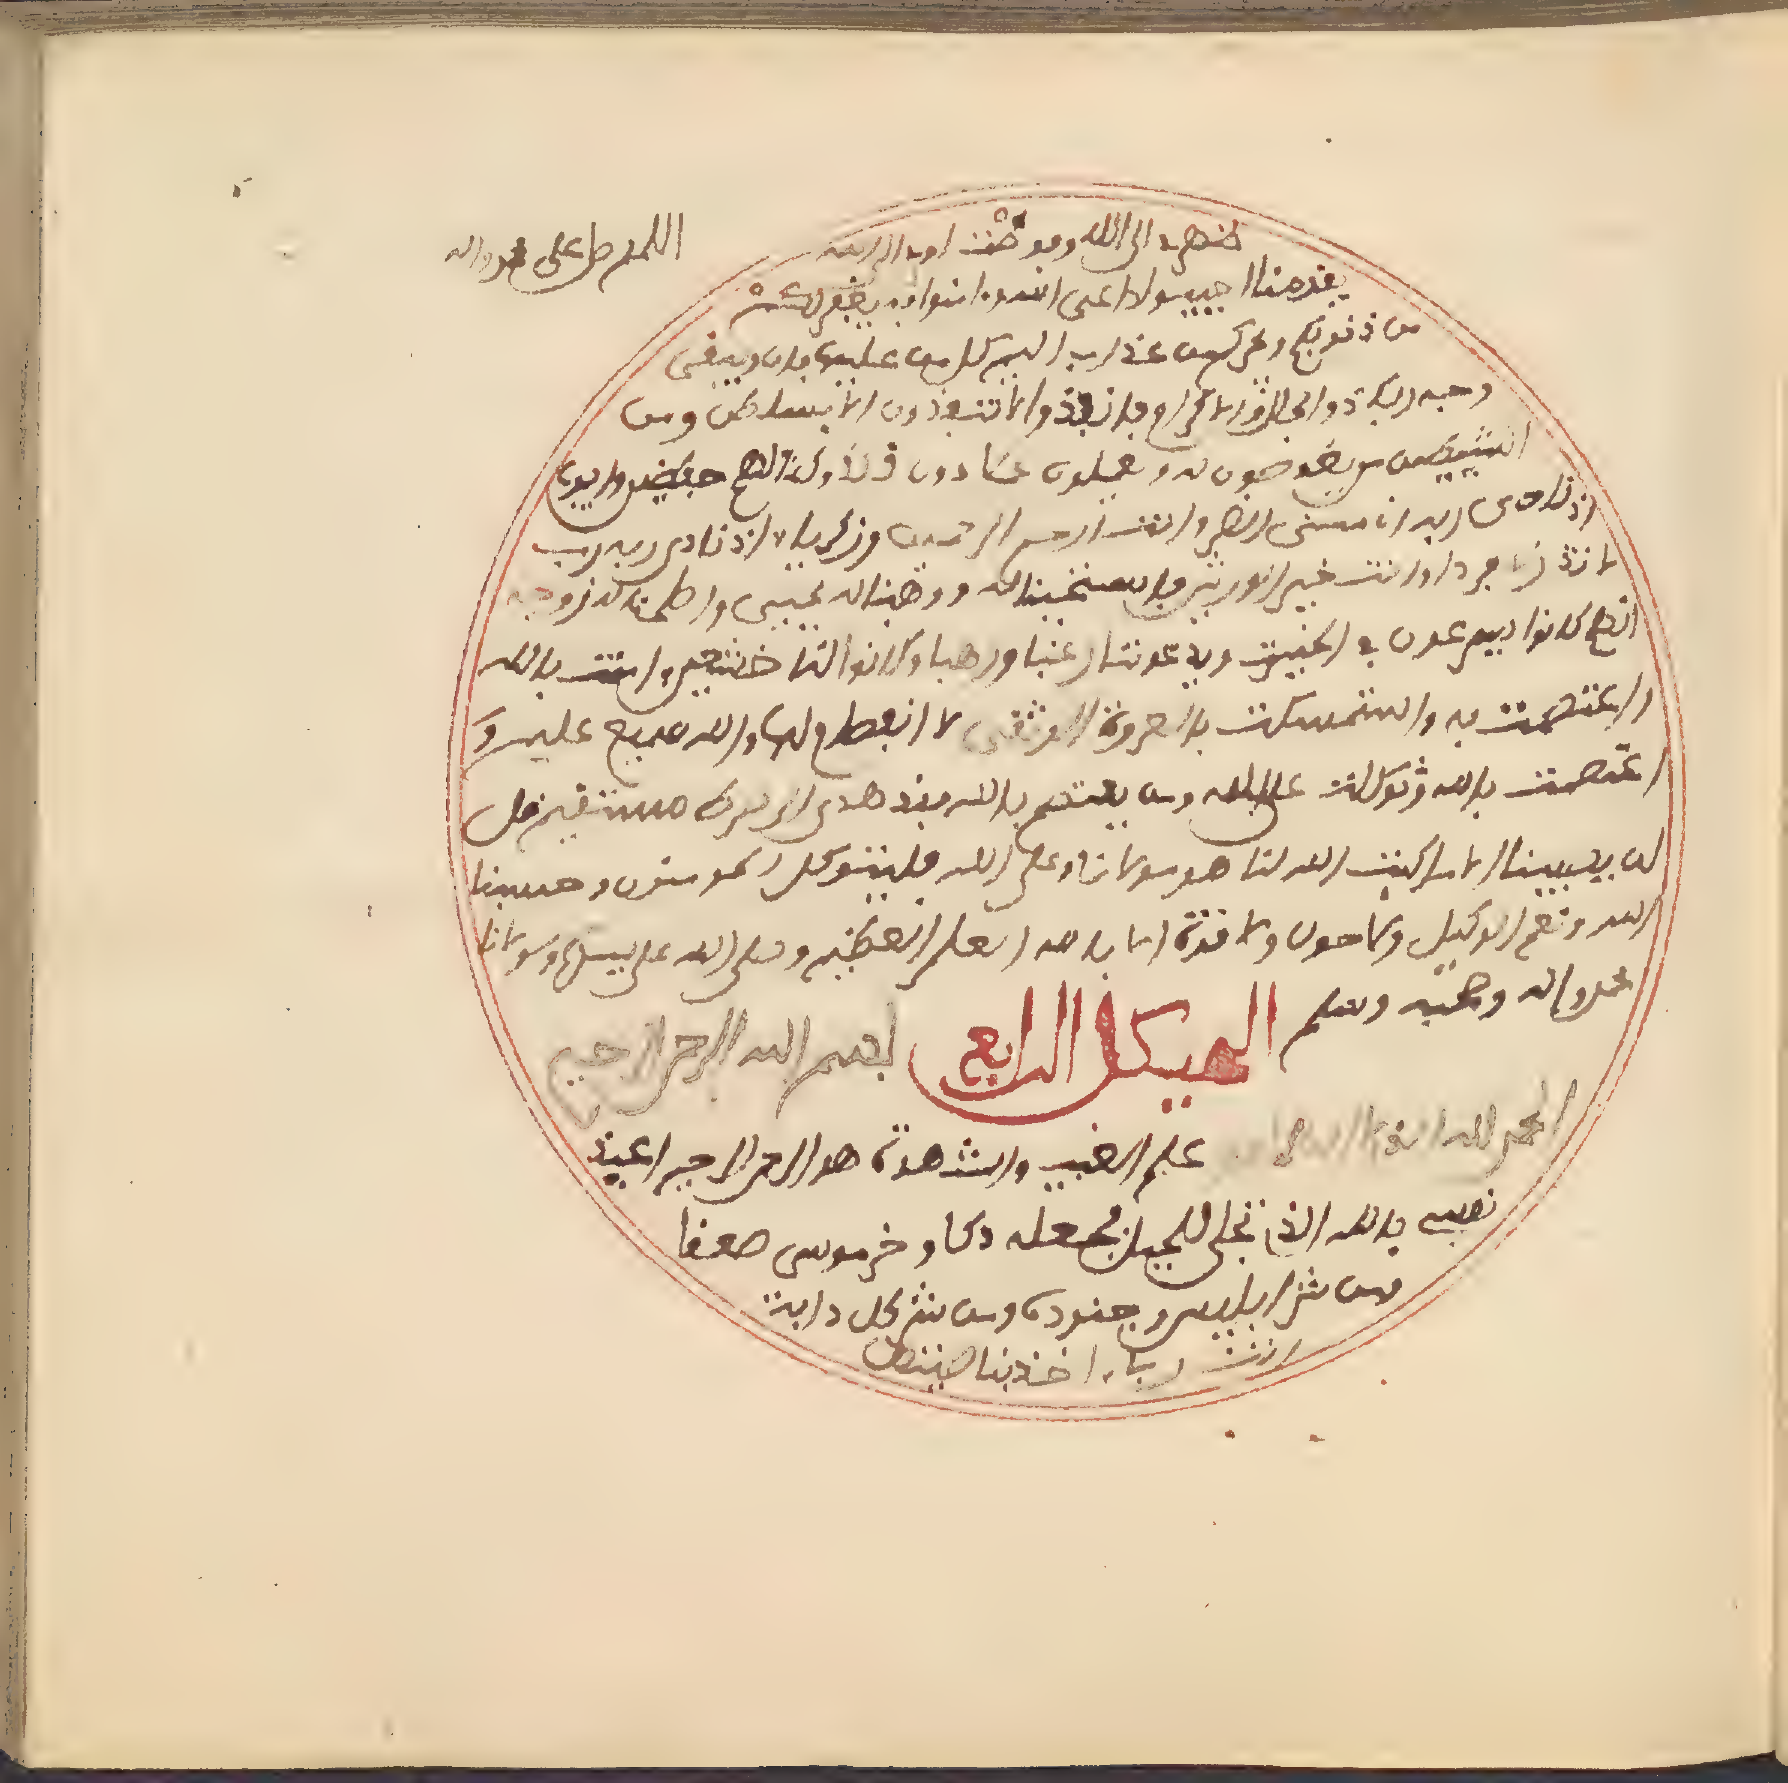 اللهم صل على محمد واله
ظهري الى الله وفوضت امري اليه
يقومنا اجيبوا داعي الله وامنوا به يغفر لكم
من ذنوبكم ويجركم من عذاب اليم كل من عليها فان ويبقى
وجه ربك ذو الجلل والاكرام فانفذوا لا تنفذون الا بسلطن ومن
الشيطين من يغوصون له ويعملون عملا دون ذلك وكنا لهم حفظين وايوب
اذ نادى ربه اني مسني الضر وانت ارحم الرحمين وزكرياء اذ نادى ربه رب
لا تذرني فردا وانت خير الورثين فاستجبنا له ووهبنا له يحيى واصلحنا له زوجه
انهم كانوا يسرعون في الخيرت ويدعوننا رغبا ورهبا وكانوا لنا خشعين امنت بالله
واعتصمت به واستمسكت بالعروة الوثقى لا انفصام لها والله سميع عليم و
اعتصمت بالله وتوكلت على الله ومن يعتصم بالله فقد هدي الى صرط مستقيم قل
لن يصيبنا الا ما كتب الله لنا هو مولانا وعلى الله فليتوكل المومنون وحسبنا
الله ونعم الوكيل ولا حول ولا قوة الا بالله العلي العظيم وصلى الله على سيدنا ومولانا
محمد واله وصحبه وسلم
الهيكل الرابع
بسم الله الرحمن الرحيم
الله لا اله الا
علم الغيب والشهدة هو الرحمن الرحيم اعيذ
نفسي بالله الذي تجلى للجبل فجعله دكا وخر موسى صعقا
من شر ابليس وجنوده ومن شر كل دابة
انت ربي اخذ بناصيتها